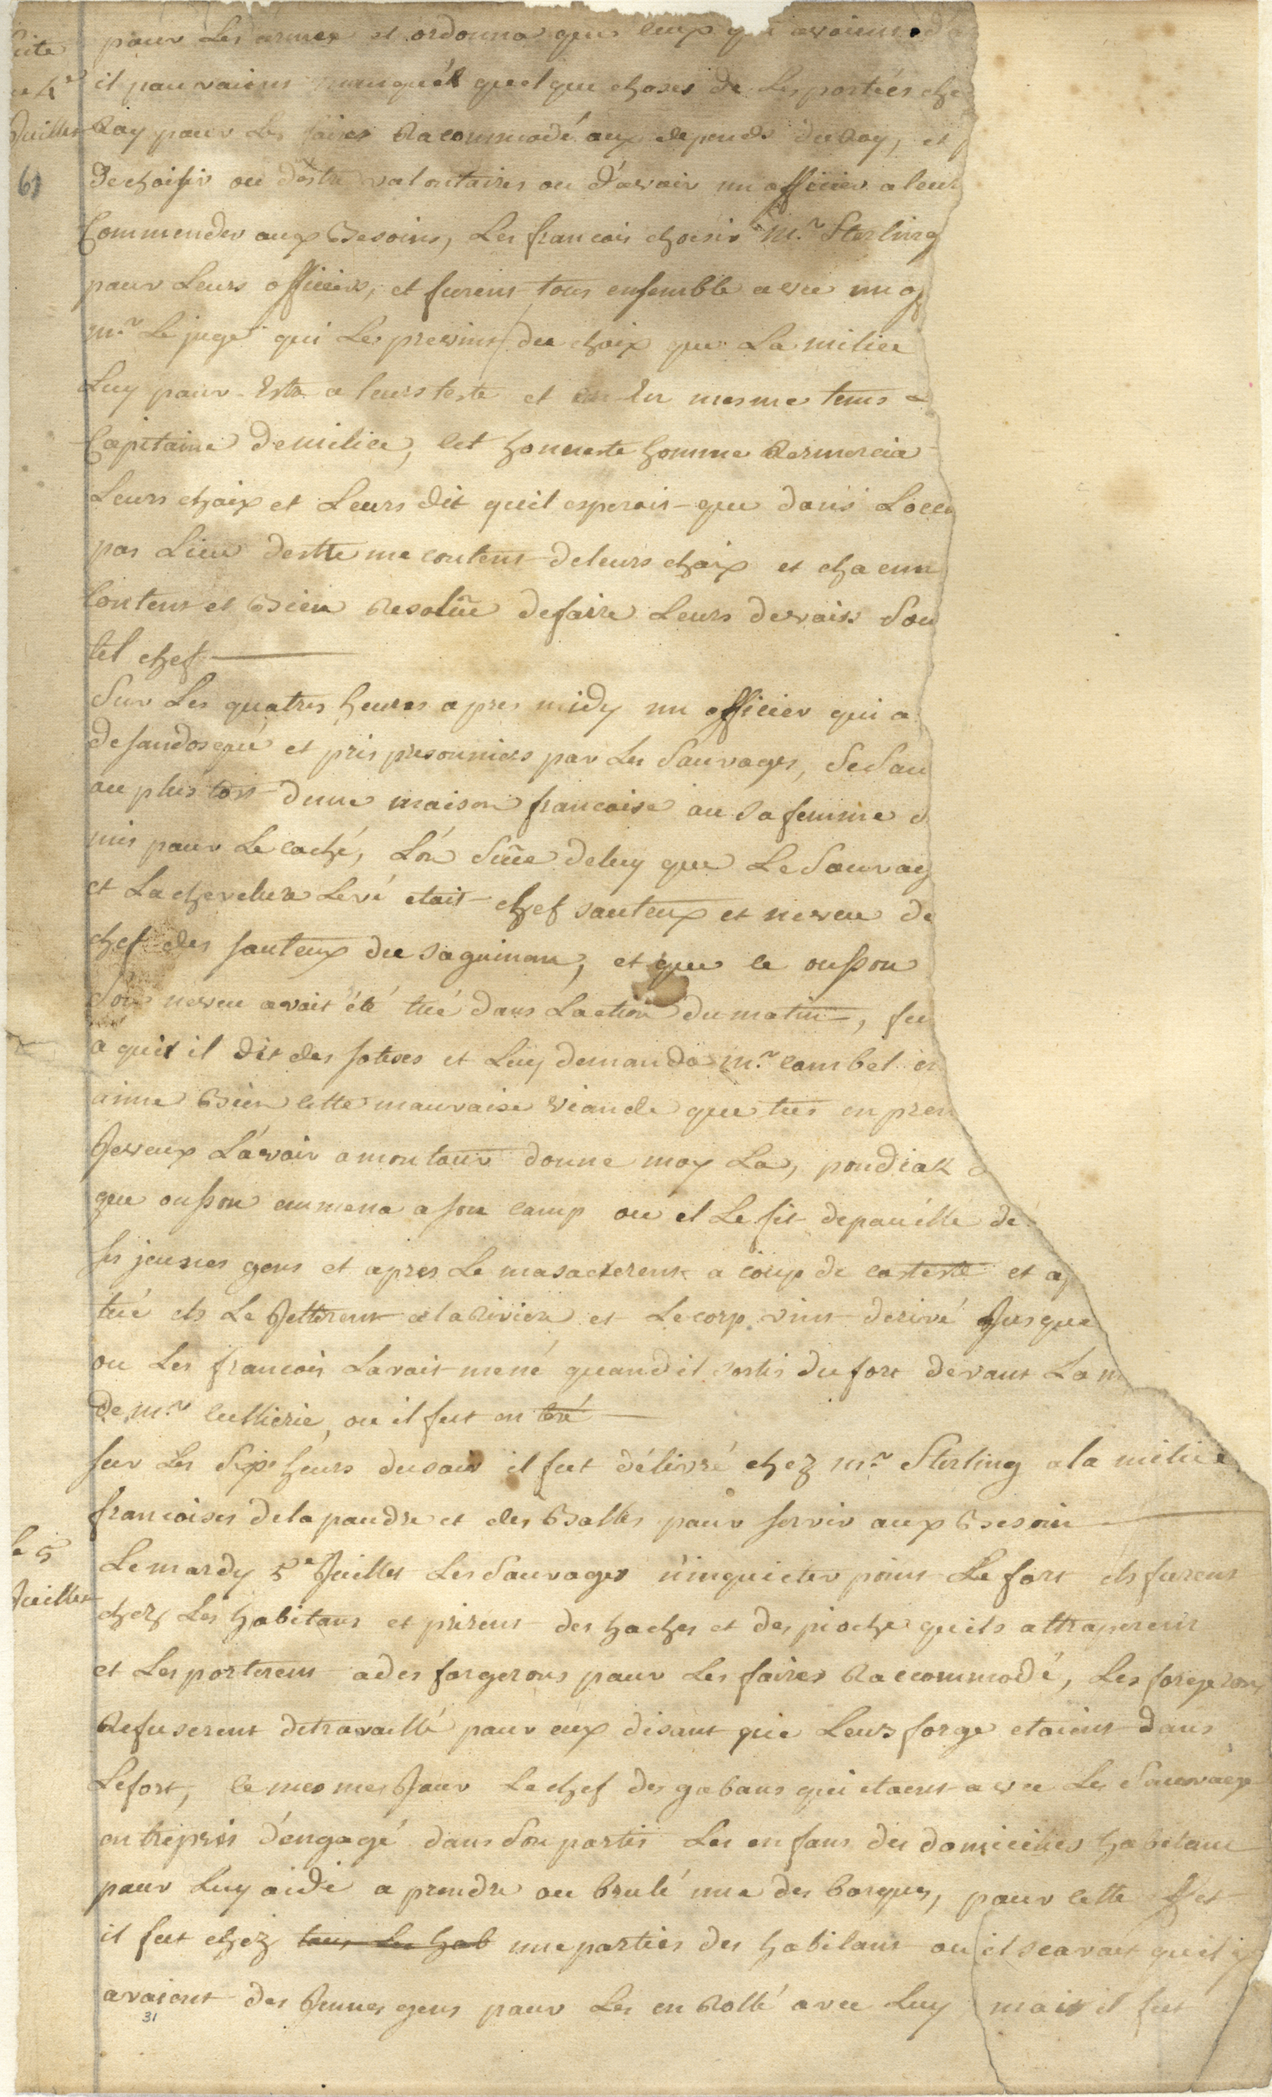 suite
ce 4e
Juillet
61
pour Les armes et ordonna que ceux qui avaient
il pouvaient manqués quelque choses de Les portés che
Roy pour Les faires Racommodé aux depends du Roy, et
De choisir ou destre volontaires ou d'avoir un officier a leur
Commender aux Besoins, Les francois choisis Mr. Sterling
pour Leurs officiers, et furent tous ensemble avec un
Mr. Le juge qui Le prevint du choix que La milice
Luy pour Estre a leurs teste et en mesme tems
Capitaine de milice, cet honneste homme Remercia
Leurs choix et Leurs dit quil esperait que dans Locca
pas Lieu destre mecontent de leurs choix et chacun
Content et Bien Resolüe de faire Leurs devoirs Sou
tel chef
Sur Les quatres heures apres midy un officier qui a
de sandosequé et pris presonniers par Les Sauvages, se Sau
au plus tost d'une maison francaise ou sa femme
mis pour Le caché, L'on Süue de luy que Le Sauvag
et La chevelure Levé etait chef sauteux et neveu de
chef des sauteux du saguinau, et que ce ousson
son neveu avait été tué dans Laction du matin, fu
a qui il dit des sotises et Luy demanda Mr. Cambel en
aime Bien cette mauvaise viande que tus en pren
Je veux L'avoir a mon tour donne moy La, pondiak
que ousson emmena a son camp ou il Le fit depouille de
ses jeunes gens et apres Le masacrerent a coup de casteste et a
tué ils Le Jetterent a la Riviere et Le corp vint derivé Jusque
ou Les francois Lavait mené quand il sortis du fort devant La m
De Mr. Cullierie, ou il fut en teré
sur Les Six heurs du soir il fut délivré chez Mr. Sterling a la milice
francoises de la poudre et des Balles pour servir aux Besoin
Le 5
Juillet
Le mardy 5e Juillet Les Sauvages n'inquieter point Le fort ils furent
chez Les habitans et prirent des haches et des pioche quils attraperent
et Les porterent a des forgerons pour Les faires Raccommodé, Les forgerons
Refuserent de travaillé pour eux disant que Leurs forge etaient dans
Le fort, ce mesmes Jour Le chef des gabans qui etaent avec Les Sauvages
entrepris d'engagé dans Son partis Les enfans des domicilies habitans
pour Luy aidé a prendre ou brulé une des barques, pour cette effet
il fut chez tous les hab une parties des habitans ou il scavait quil y
avaient des Jeunes gens pour Les en Rollé avec Luy mais il fut
31